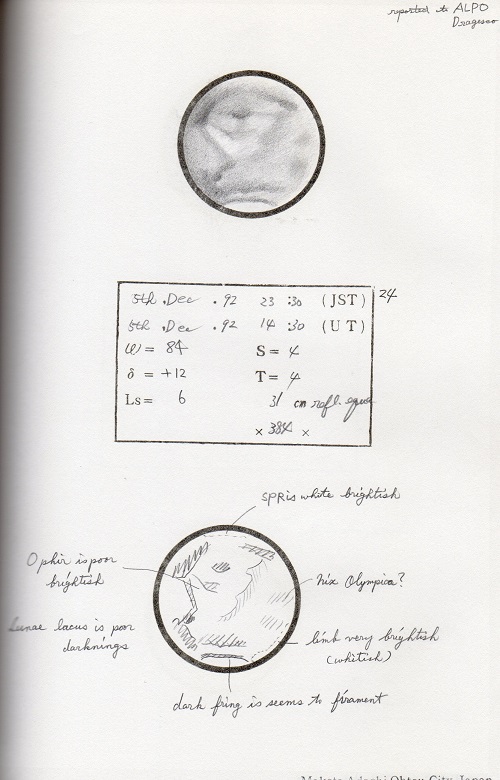 reported to ALPO
Dragesco
5th .Dec . 92 23 :30 (JST) 24
5th .Dec . 92 14 :30 (UT)
ω = 84 S = 4
δ = +12 T = 4
Ls= 6 31 cm refl.
× 384 ×
SPR is white brightish
Ophir is poor
brightish
Nix Olympica?
Lunae lacus is poor
darknings
limb very brightish
(whitish)
dark fring is seems to firament
Makoto Adachi Ohtsu City Japan